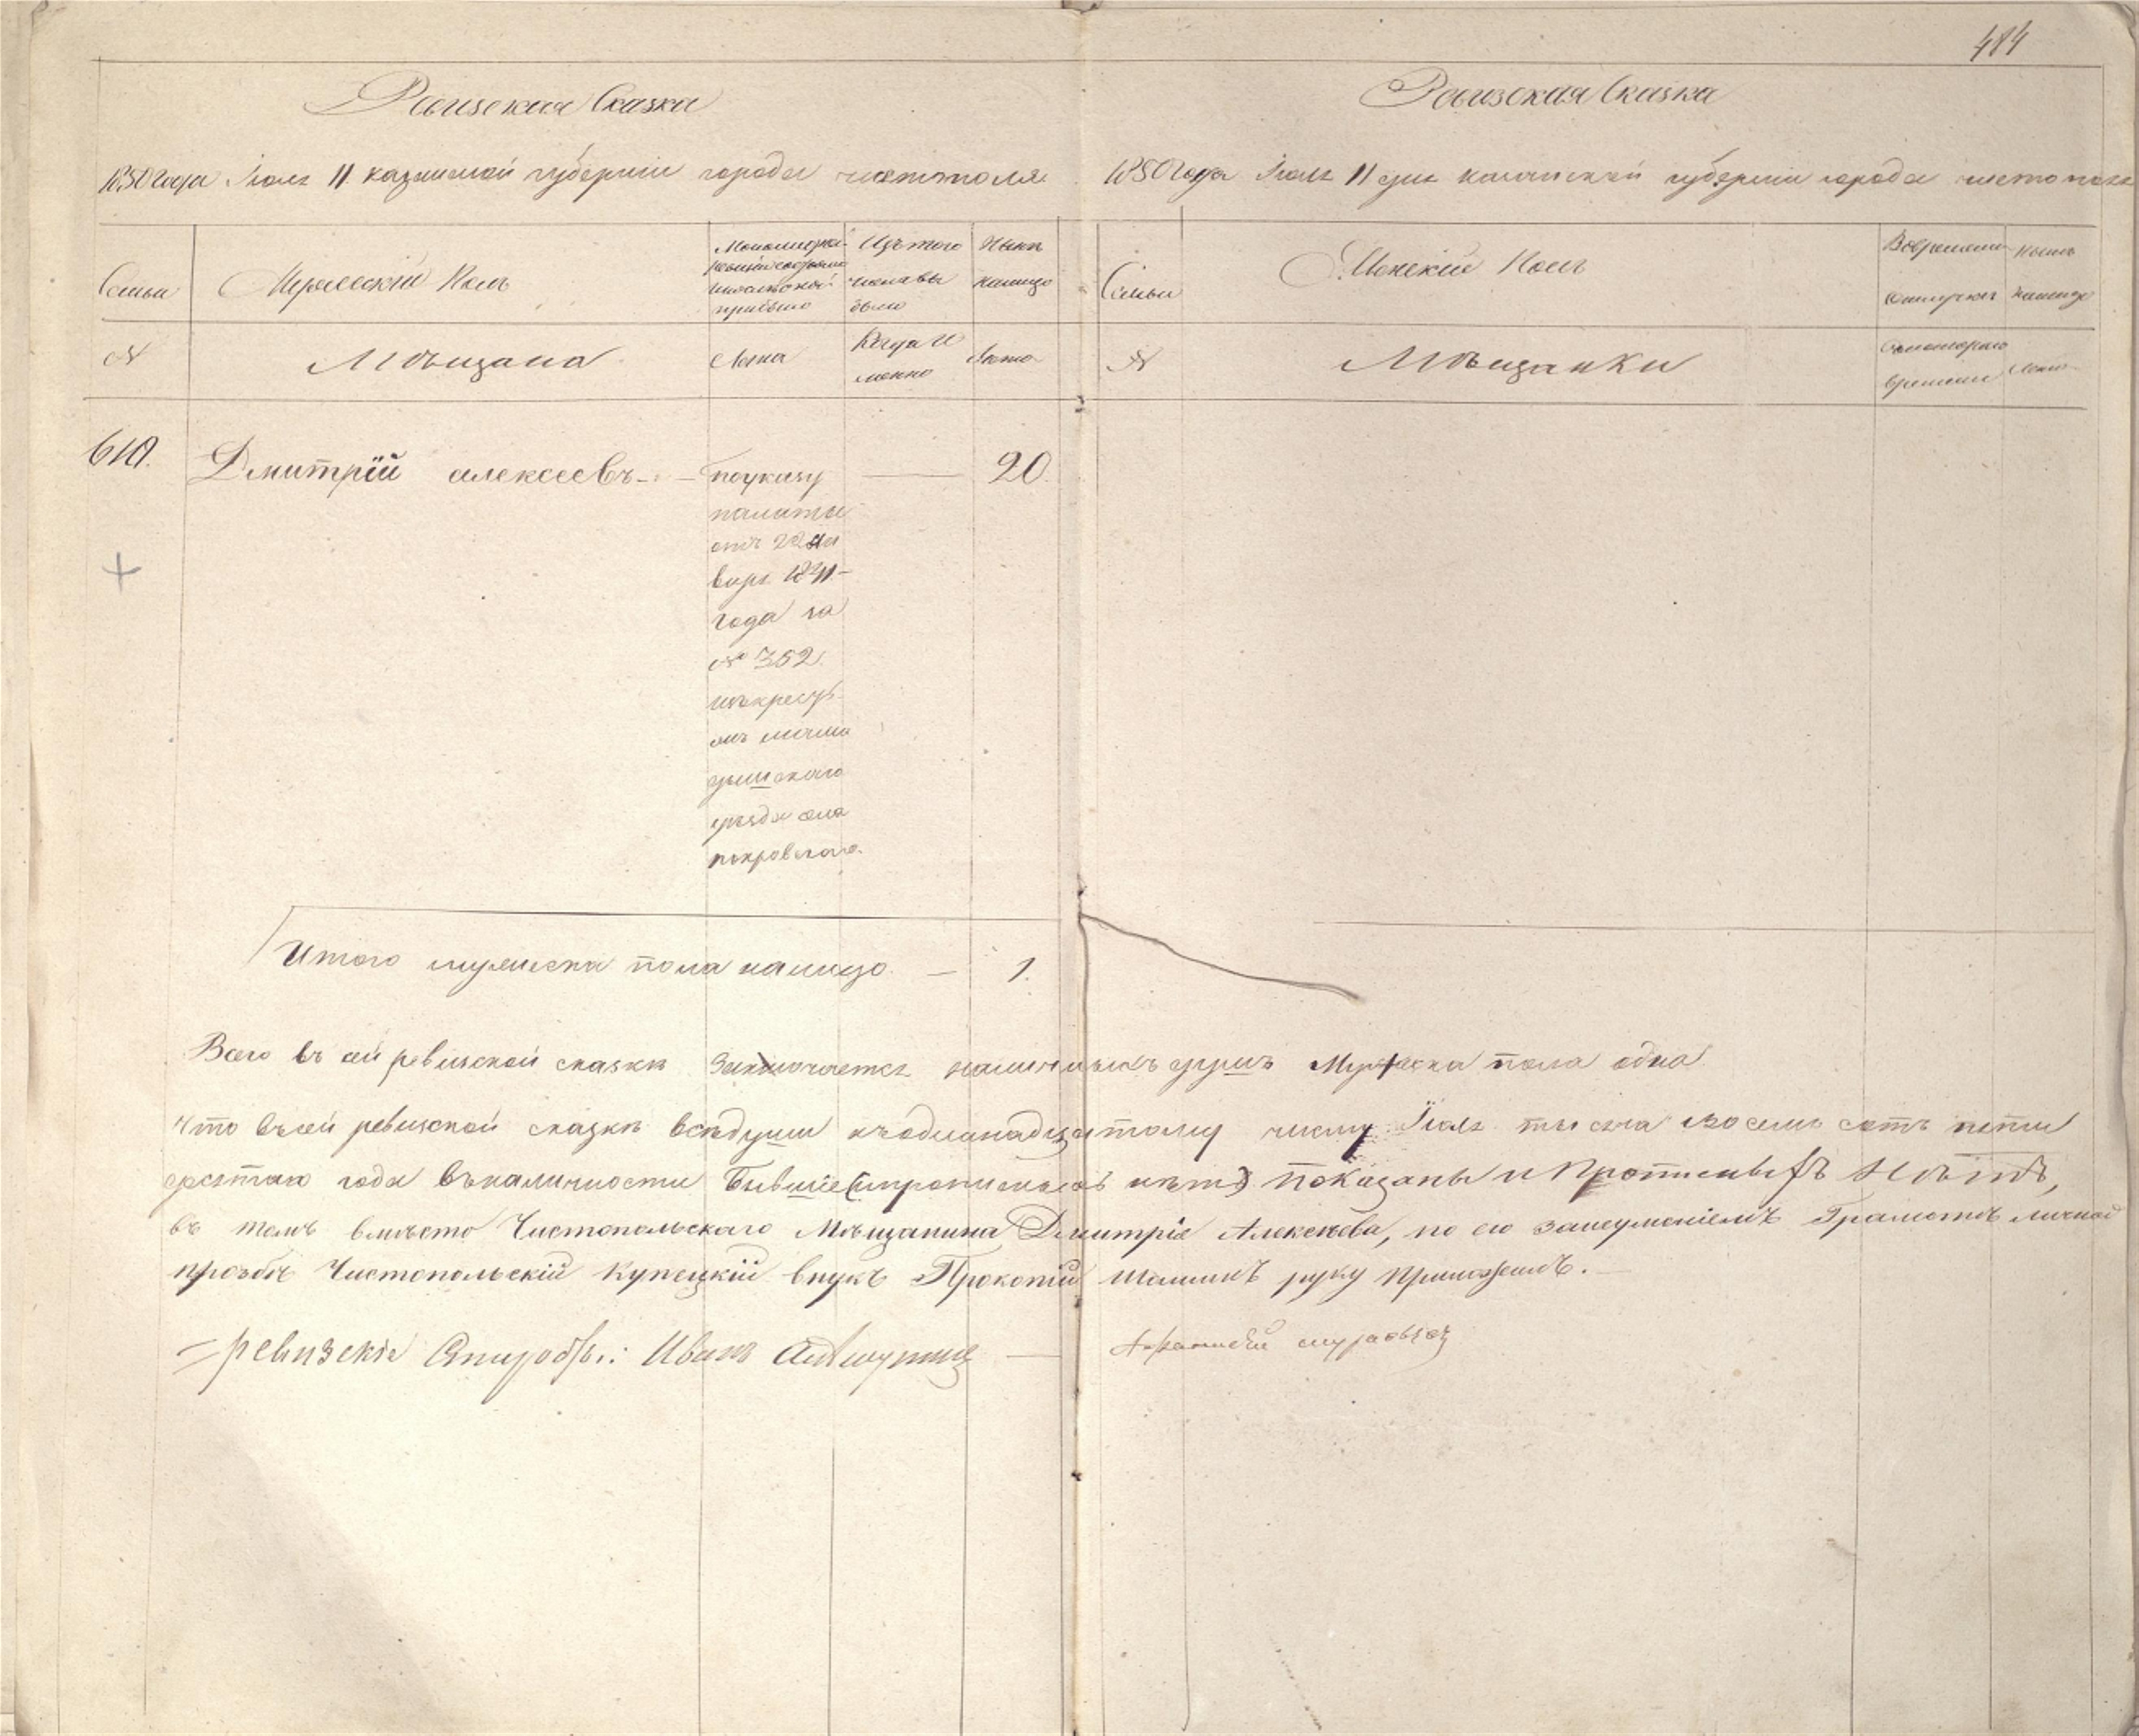 484
Ревизская Сказка
1850 года Июля 11 казанской губернии города чистополя
Семьи
Мужескій Полъ
Изъ того
числа вы
было
Нынѣ
налицо
№
Мѣщана
Лѣта
Когда и
менно
Лѣта
610.
Дмитрїй алексеевъ
по указу
палаты
отъ 22 Ян
варя 1841
года за
№ 352
изъ крестъ
янъ мама
дышскаго
уѣзда села
покровскаго.
20
Итого мужеска пола налицо — 1.
Ревизская Сказка
1850 года Июля 11 дня казанской губернии города чистополя
Семьи
Женскій Полъ
Во временной
отлучкѣ
Нынѣ
налицо
№
Мѣщанки
Съ котораго
времени
Лѣта
Всего въ сей ревизской сказкѣ Заключается наличныхъ душъ Мужеска пола одна
Что въ сей ревизской сказкѣ всѣ души къ одинадцатому числу Їюля тысяча восемь сотъ пяти
десятаго года въ наличности Бывшїе (и прописныхъ нѣтъ) показаны и Прописныхъ Нѣтъ,
въ томъ вмѣсто Чистопольскаго Мѣщанина Дмитрія Алексѣева, по его за неумѣніемъ Грамотѣ личной
прозбѣ Чистопольскій Купецкій внукъ Прокопій Шашинъ руку Приложилъ.
ревизскіе Старосты: Иванъ